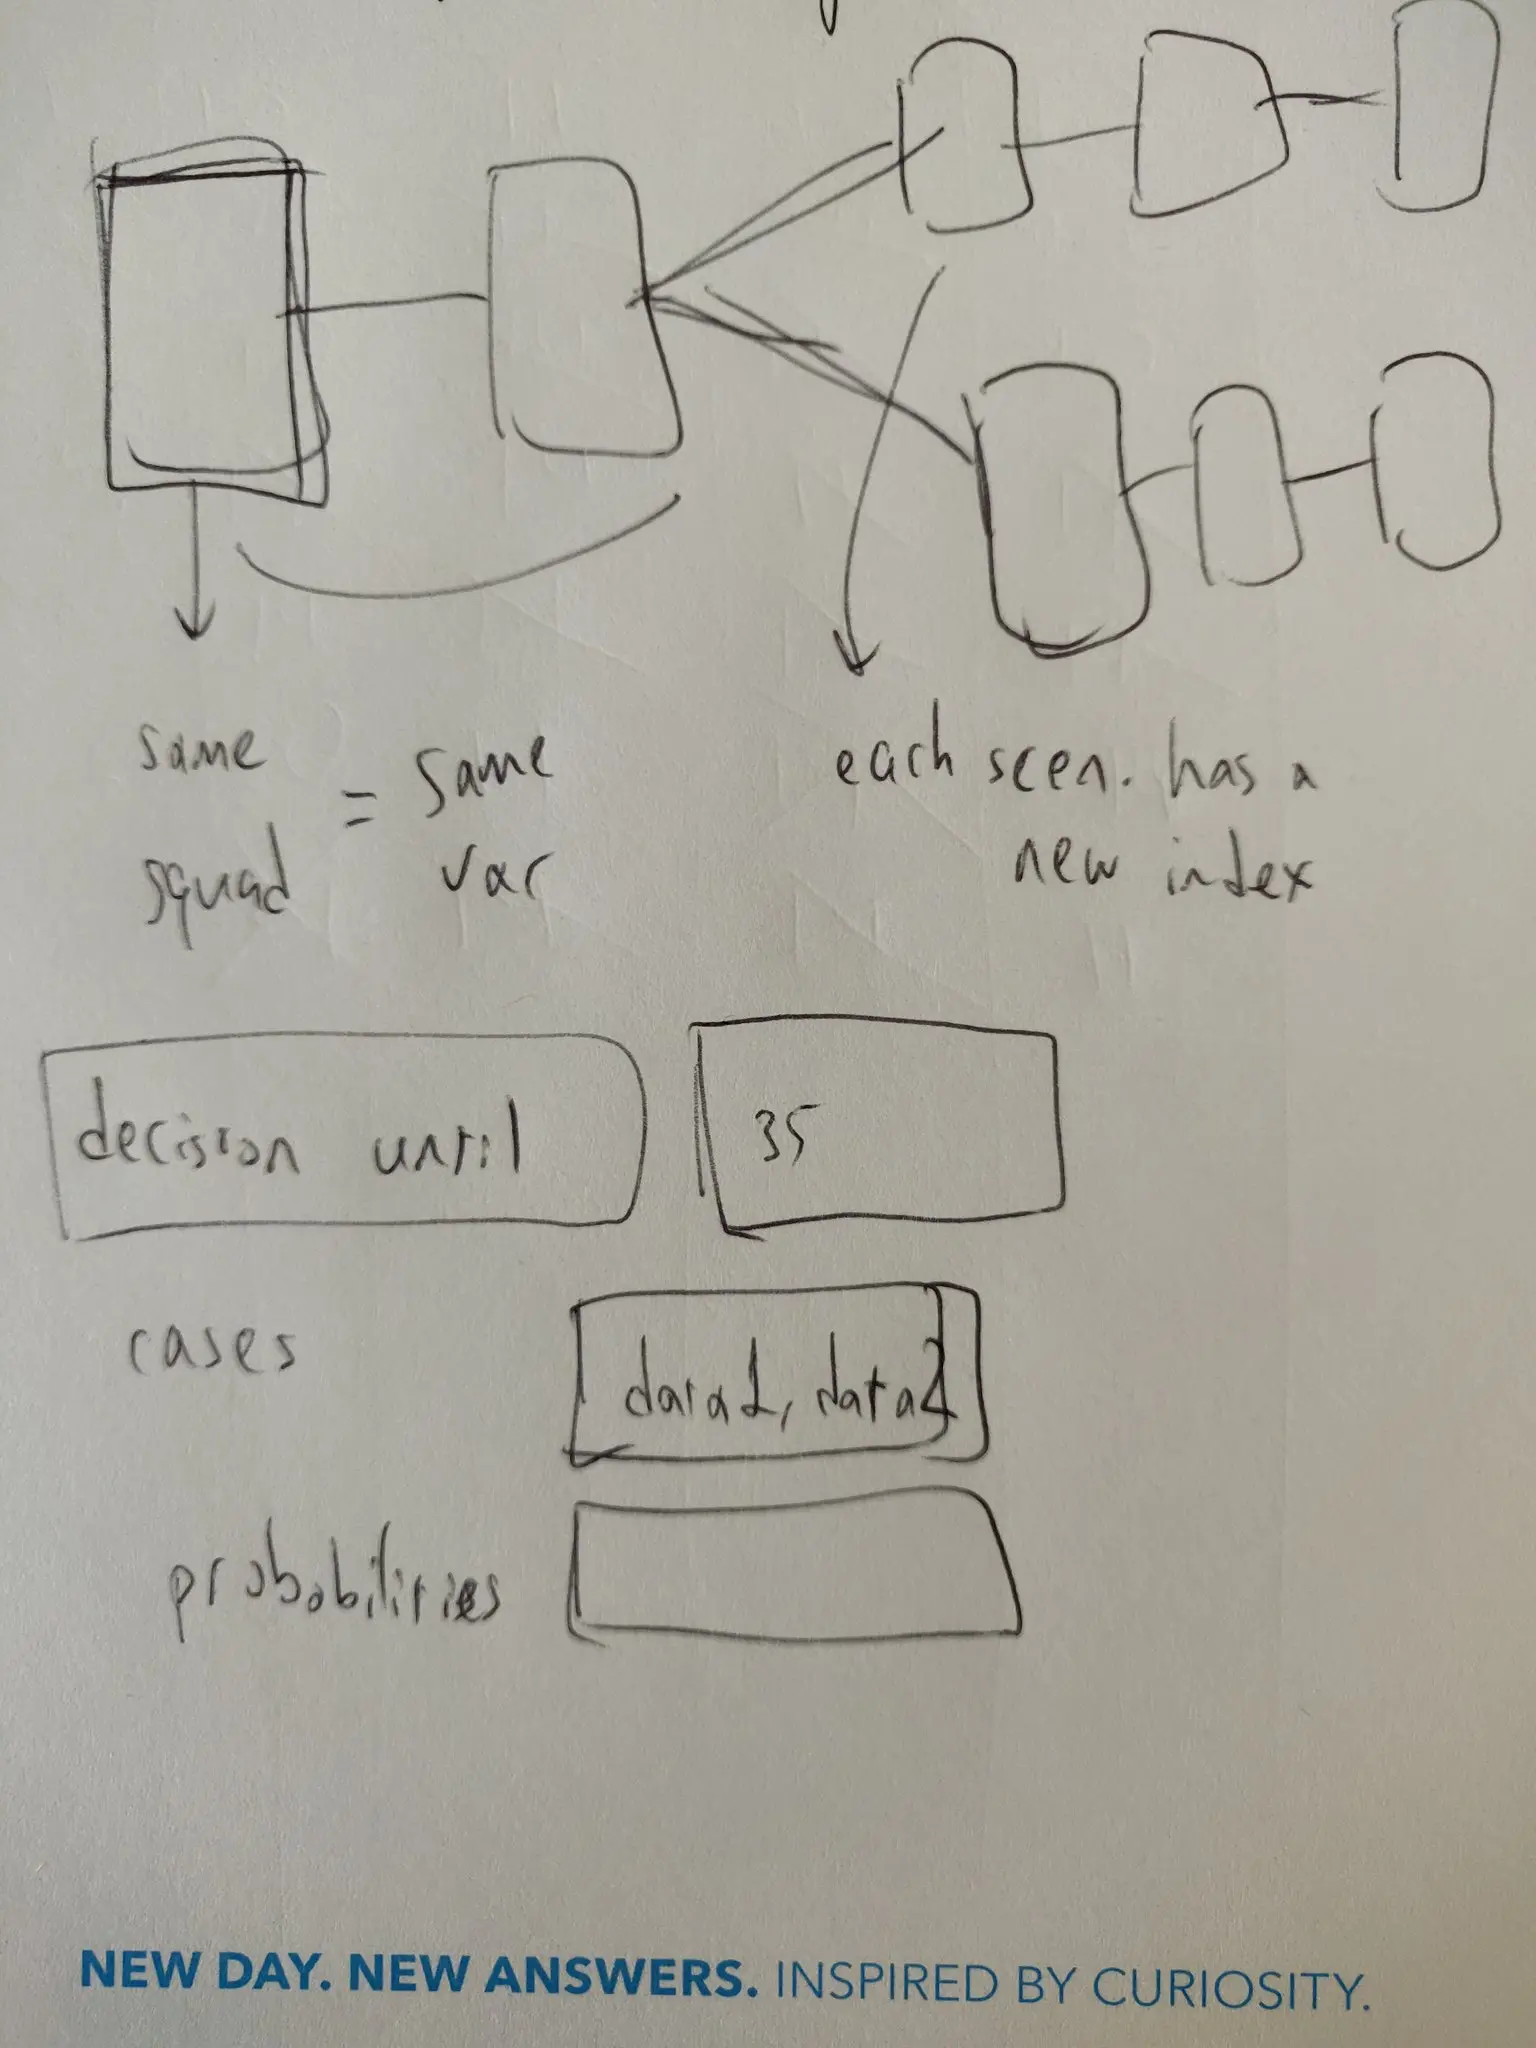 same
squad
= same
var
each scen. has a
new index
decision until
35
cases
data1, data2
probobilities
NEW DAY. NEW ANSWERS. INSPIRED BY CURIOSITY.